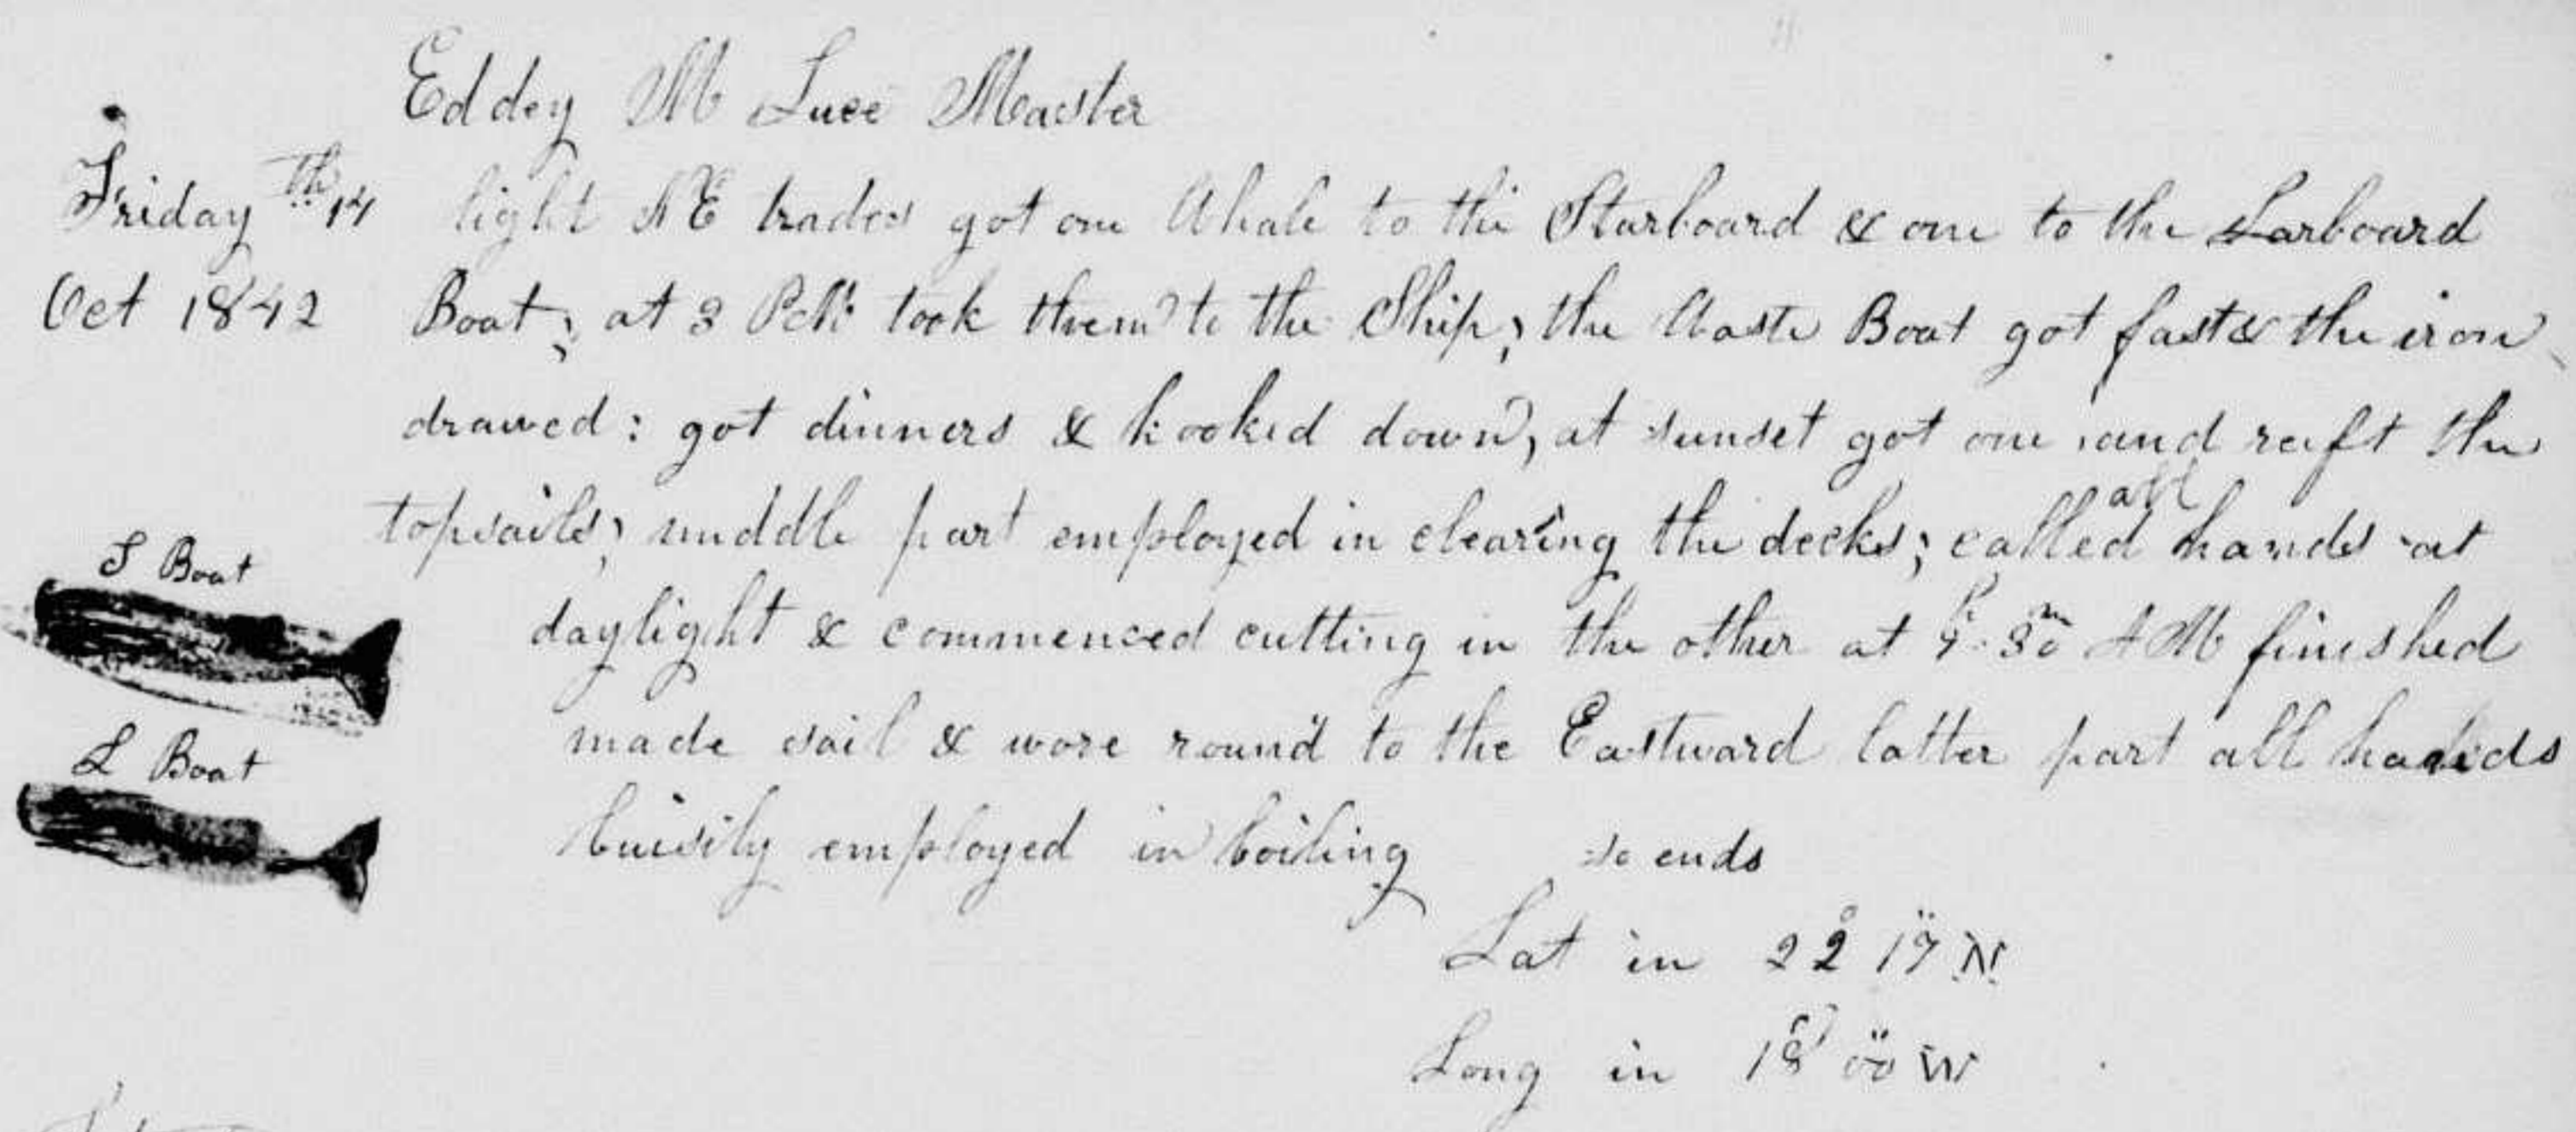 Eddey M Luce Master
Friday th 14 light NE trades got one Whale to the Starboard & one to the Larboard
Oct 1842 Boat; at 3 PM took them to the Ship; the Waste Boat got fast & the iron
drawed: got dinners & hooked down, at sunset got one and reeft the
topsails; middle part employed in clearing the decks; called all hands at
S Boat
daylight & commenced cutting in the other at h m 30 AM finished
made sail & wore round to the Eastward latter part all hands
L Boat
buisily employed in boiling so ends
Lat in 22° 17 N
Long in 18° 00 W